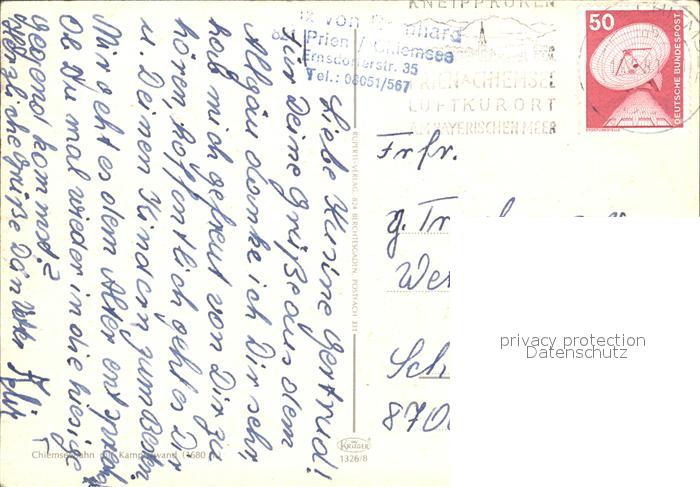 Liebe Kusine Gertrud!
Für Deine Grüße aus dem
Allgäu danke ich Dir sehr,
hab mich gefreut von Dir zu
hören, hoffentlich geht es Dir
u. Deinen Kindern zum Besten.
Mir geht es dem Alter entsprechend
Ob Du mal wieder in die hiesige
Gegend kommst?
Herzliche Grüße Dein Vetter
von
Prien / Chiemsee
Ernsdorferstr. 35
Tel.: 08051/567
KNEIPPKUREN
PRIEN A CHIEMSEE
LUFTKURORT
AM BAYERISCHEN MEER
50
DEUTSCHE BUNDESPOST
ERDFUNKSTELLE
Frfr.
RUPERTI-VERLAG, 824 BERCHTESGADEN, POSTFACH 331
privacy protection
Datenschutz
870
KRÜGER
1326/8
Chiemseebahn mit Kampenwand (1680 m)